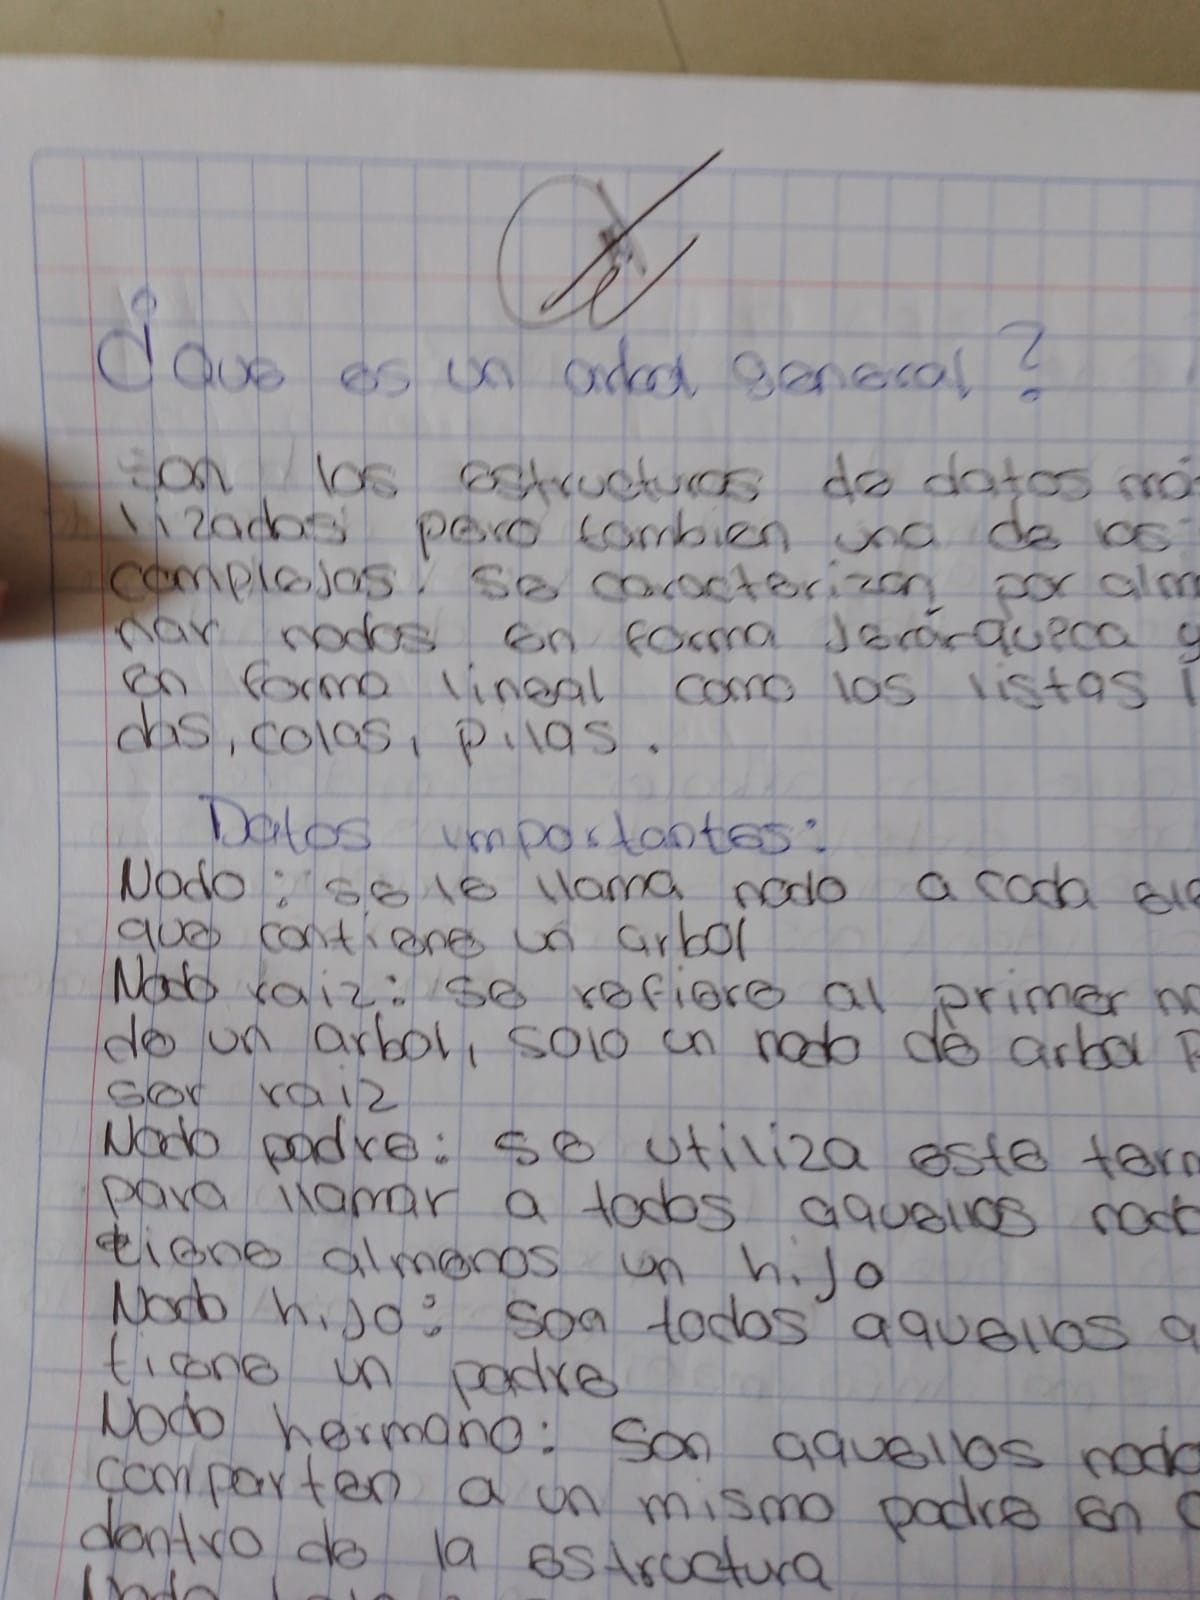 ¿Que es un arbol general?
son las estructuras de datos más
lizadas pero tambien una de las
complejas. Se caracterizan por alm
nar nodos en forma Jerárqueca y
en forma lineal como las listas l
das, colas, pilas.
Datos importantes:
Nodo: se le llama nodo a cada ele
que contiene un arbol
Nodo raiz: se refiere al primer no
de un arbol, solo un nodo de arbol p
ser raiz
Nodo padre: se utiliza este term
para llamar a todos aquellos nod
tiene almenos un hijo
Nodo hijo: son todos aquellos q
tiene un padre
Nodo hermano: Son aquellos nodo
comparten a un mismo padre en c
dentro de la estructura
Nodo